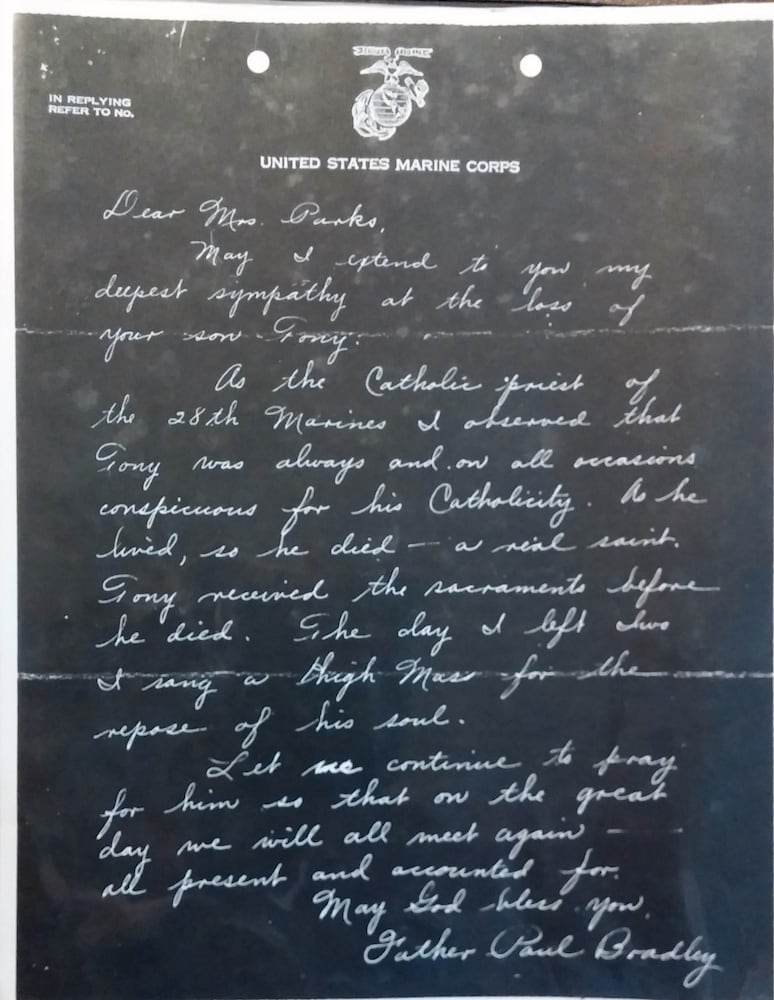 IN REPLYING
REFER TO NO.
UNITED STATES MARINE CORPS
Dear Mrs. Parks,
May I extend to you my
deepest sympathy at the loss of
your son Tony.
As the Catholic priest of
the 28th Marines I observed that
Tony was always and on all occasions
conspicuous for his Catholicity. As he
lived, so he died — a real saint.
Tony received the sacraments before
he died. The day I left Iwo
I sang a High Mass for the
repose of his soul.
Let us continue to pray
for him so that on the great
day we will all meet again —
all present and accounted for.
May God bless you.
Father Paul Bradley